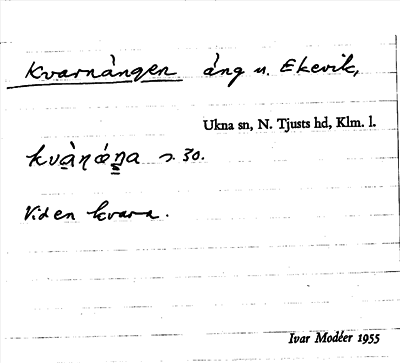 Kvarnängen äng u. Ekevik,
Ukna sn, N. Tjusts hd, Klm. l.
s. 30.
Vid en kvarn.
Ivar Modéer 1955